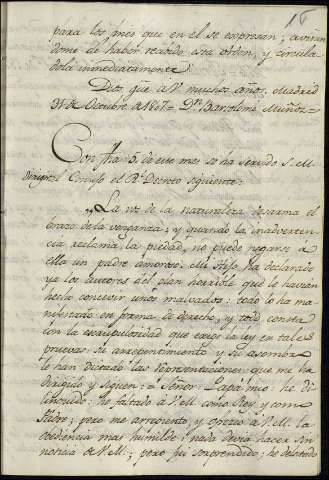 para los fines que en él se expresan; avisan
dome de haber recibido esta orden, y circula
dola inmediatamente.
Dios gue a V. muchos años. Madrid
31 de Octubre de 1807 = Dn Bartolomé Muñoz =
Con fha 5. de este mes se ha servido S. M.
dirigir al Consejo el Rl Decreto siguiente.
"La voz de la naturaleza desarma el
brazo de la venganza, y quando la inadverten
cia reclama la piedad, no puede negarse a
ella un padre amoroso. Mi Hijo ha declarado
ya los autores del plan horrible que le havian
hecho concevir unos malvados: todo lo ha ma
nifestado en forma de derecho, y todo consta
con la escrupulosidad que exige la ley en tales
pruevas: su arrepentimiento y su asombro
le han dictado las representaciones que me ha
dirigido y siguen: = Señor: Papá mio: he de
linquido: he faltado á V.M. como Rey, y como
Padre; pero me arrepiento, y ofrezco á V.M. la
obediencia mas humilde: nada devia hacer sin
noticia de V.M.; pero fui sorprendido; he delatado